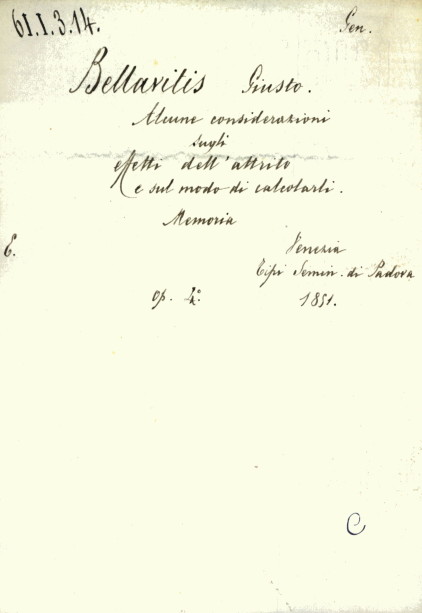 61.I.3.14.
Gen.
Bellavitis Giusto.
Alcune considerazioni
sugli
effetti dell'attrito
e sul modo di calcolarli.
Memoria
E.
Venezia
Tipi Semin. di Padova
op. 4°.
1851.
C